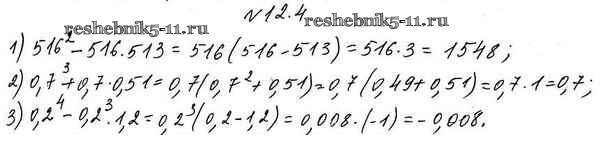 reshebnik5-11.ru
№12.4
reshebnik5-11.ru
1) 516² - 516·513 = 516(516-513) = 516·3 = 1548;
2) 0,7³ + 0,7·0,51 = 0,7(0,7²+0,51) = 0,7(0,49+0,51) = 0,7·1 = 0,7;
3) 0,2⁴ - 0,2³·1,2 = 0,2³(0,2-1,2) = 0,008·(-1) = -0,008.